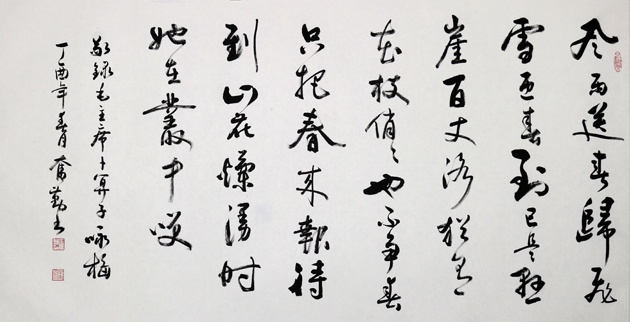 风雨送春歸飛
雪迎春到已是懸
崖百丈冰猶有
花枝俏々也不争春
只把春来報待
到山花爛漫时
她在叢中笑
敬録毛主席卜算子咏梅
丁酉年春月奮勤书